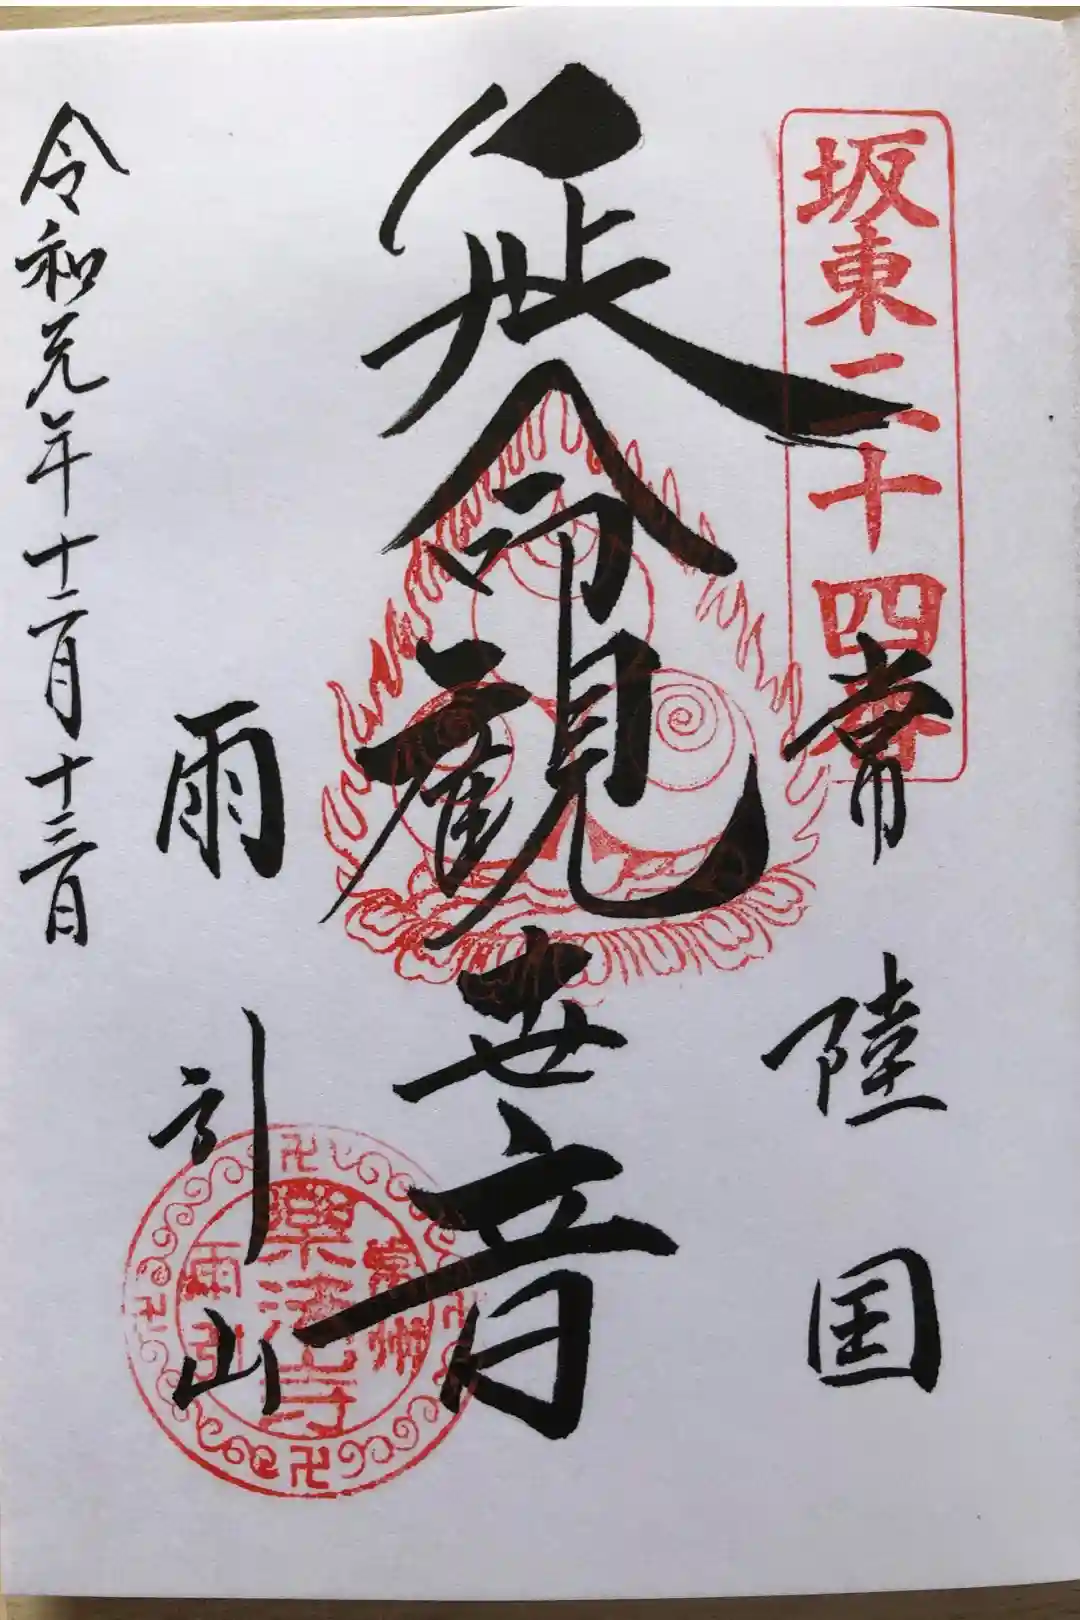 坂東二十四番
常陸国
延命観世音
雨引山
常州
樂法寺
雨引
令和元年十二月十三日